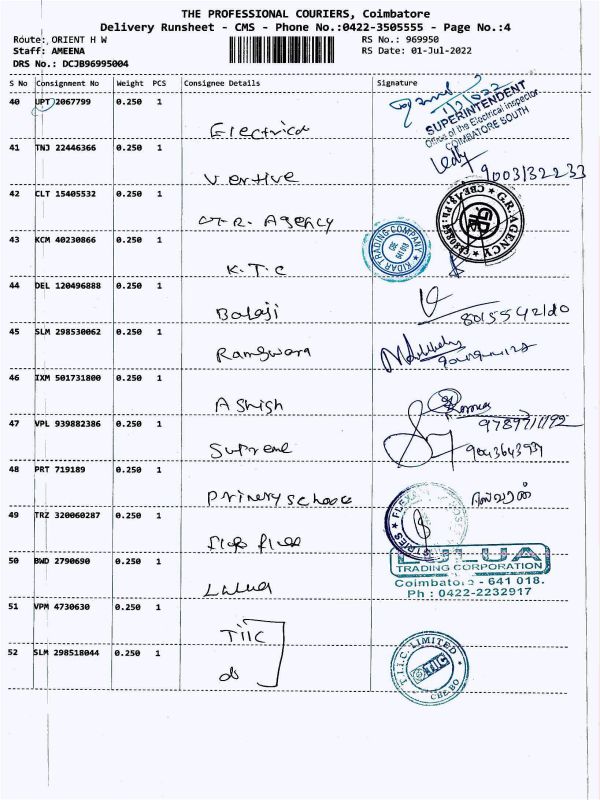 THE PROFESSIONAL COURIERS, Coimbatore
Delivery Runsheet - CMS - Phone No.:0422-3505555 - Page No.:4
Route: ORIENT H W
RS No.: 969950
Staff: AMEENA
RS Date: 01-Jul-2022
DRS No.: DCJB96995004
S No Consignment No Weight PCS Consignee Details Signature
40 UPT 2067799 0.250 1 Electrical
1/7/2022
SUPERINTENDENT
Office of the Electrical Inspector
COIMBATORE SOUTH
41 TNJ 22446366 0.250 1 Vertive
9003132233
42 CLT 15405532 0.250 1 G.R. Agency
G.R. AGENCY
43 KCM 40230866 0.250 1 K.T.C
KIDAR TRADING COMPANY
44 DEL 120496888 0.250 1 Balaji
45 SLM 298530062 0.250 1
46 IXM 501731800 0.250 1 Ashish
47 VPL 939882386 0.250 1 Supreme
9043643939
48 PRT 719189 0.250 1 Primery school
49 TRZ 320060287 0.250 1
50 BWD 2790690 0.250 1 Lulua
LULUA
TRADING CORPORATION
Coimbatore - 641 018.
Ph : 0422-2232917
51 VPM 4730630 0.250 1 TIIC
52 SLM 298518044 0.250 1 do
T.I.I.C. LIMITED
TIIC
CBE BO